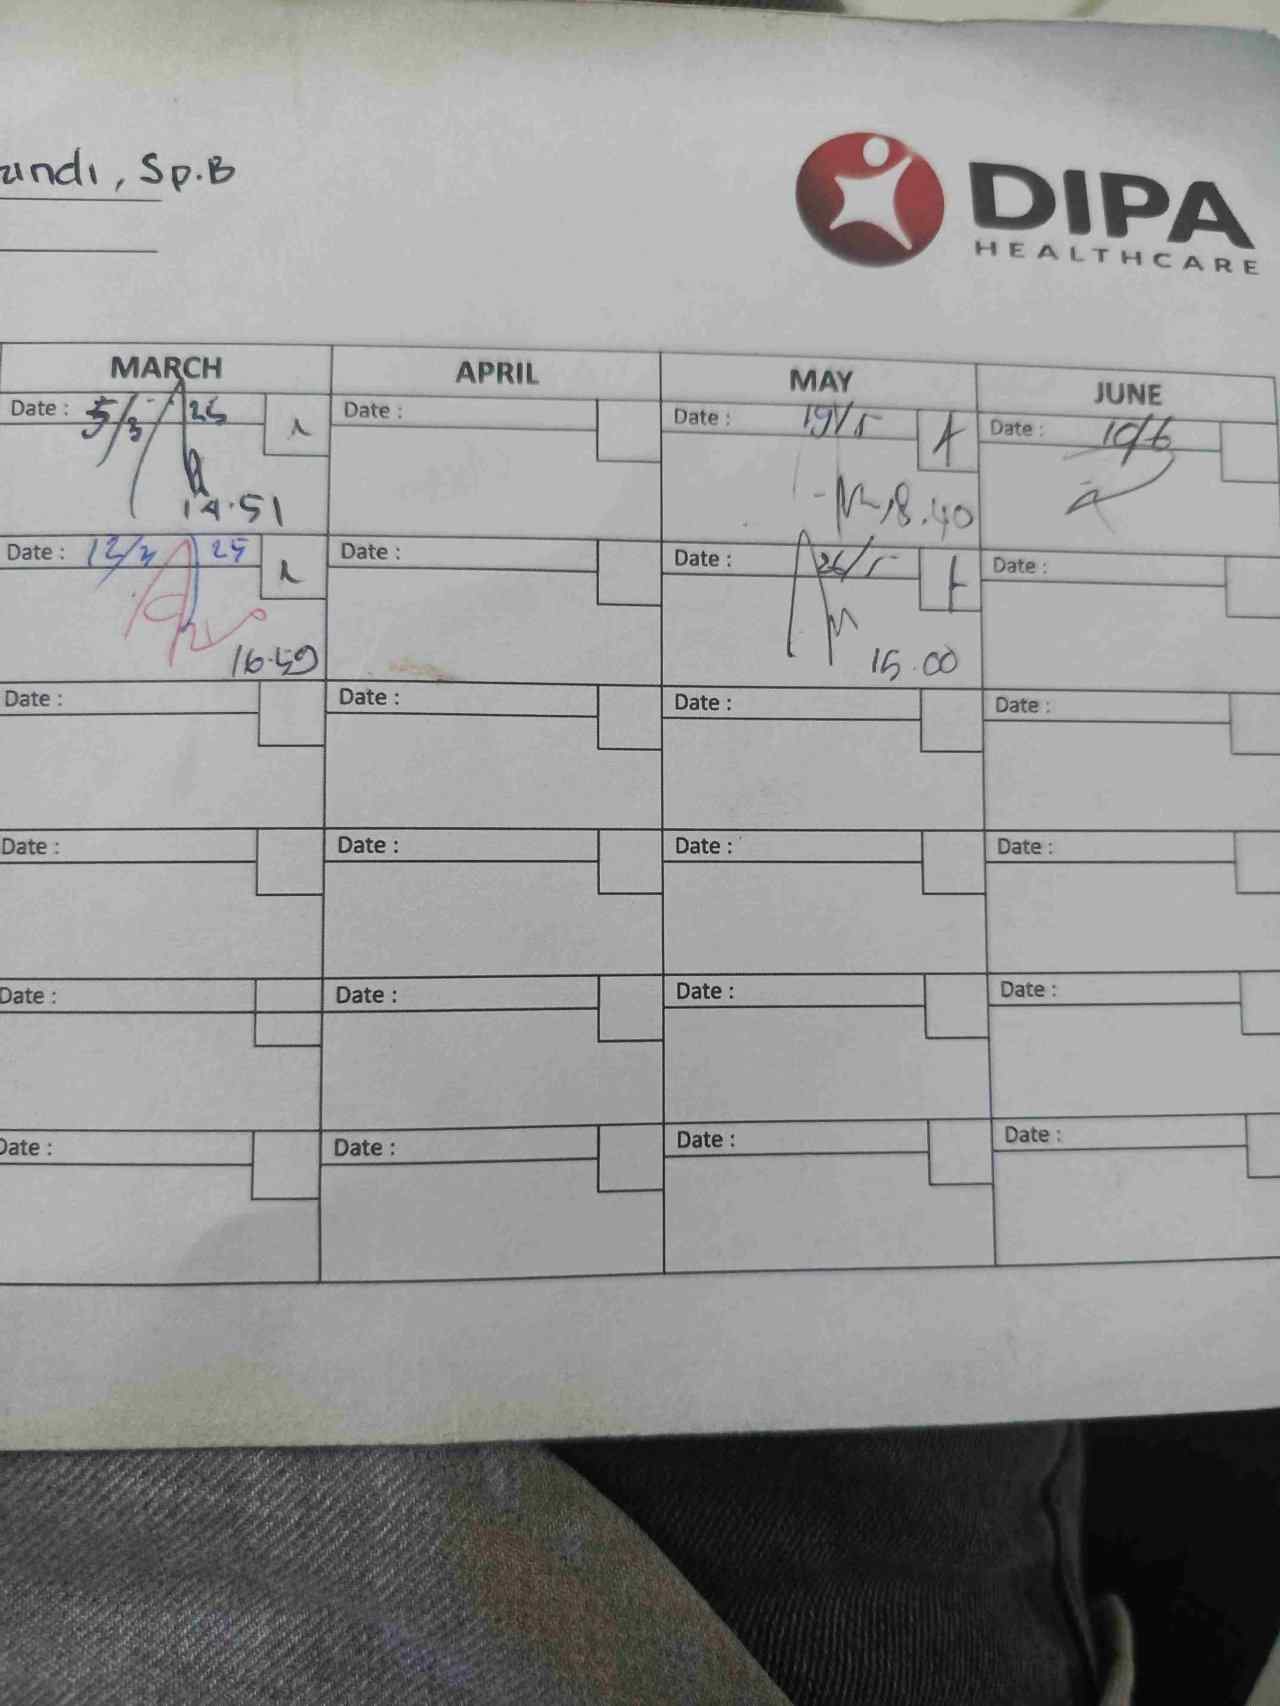 undi, Sp.B
DIPA
HEALTHCARE
MARCH APRIL MAY JUNE
Date : 5/3/25 Date : Date : 19/5 Date : 10/6
14.51 18.40
Date : 12/3 25 Date : Date : 26/5 Date :
16.59 15.00
Date : Date : Date : Date :
Date : Date : Date : Date :
Date : Date : Date : Date :
Date : Date : Date : Date :